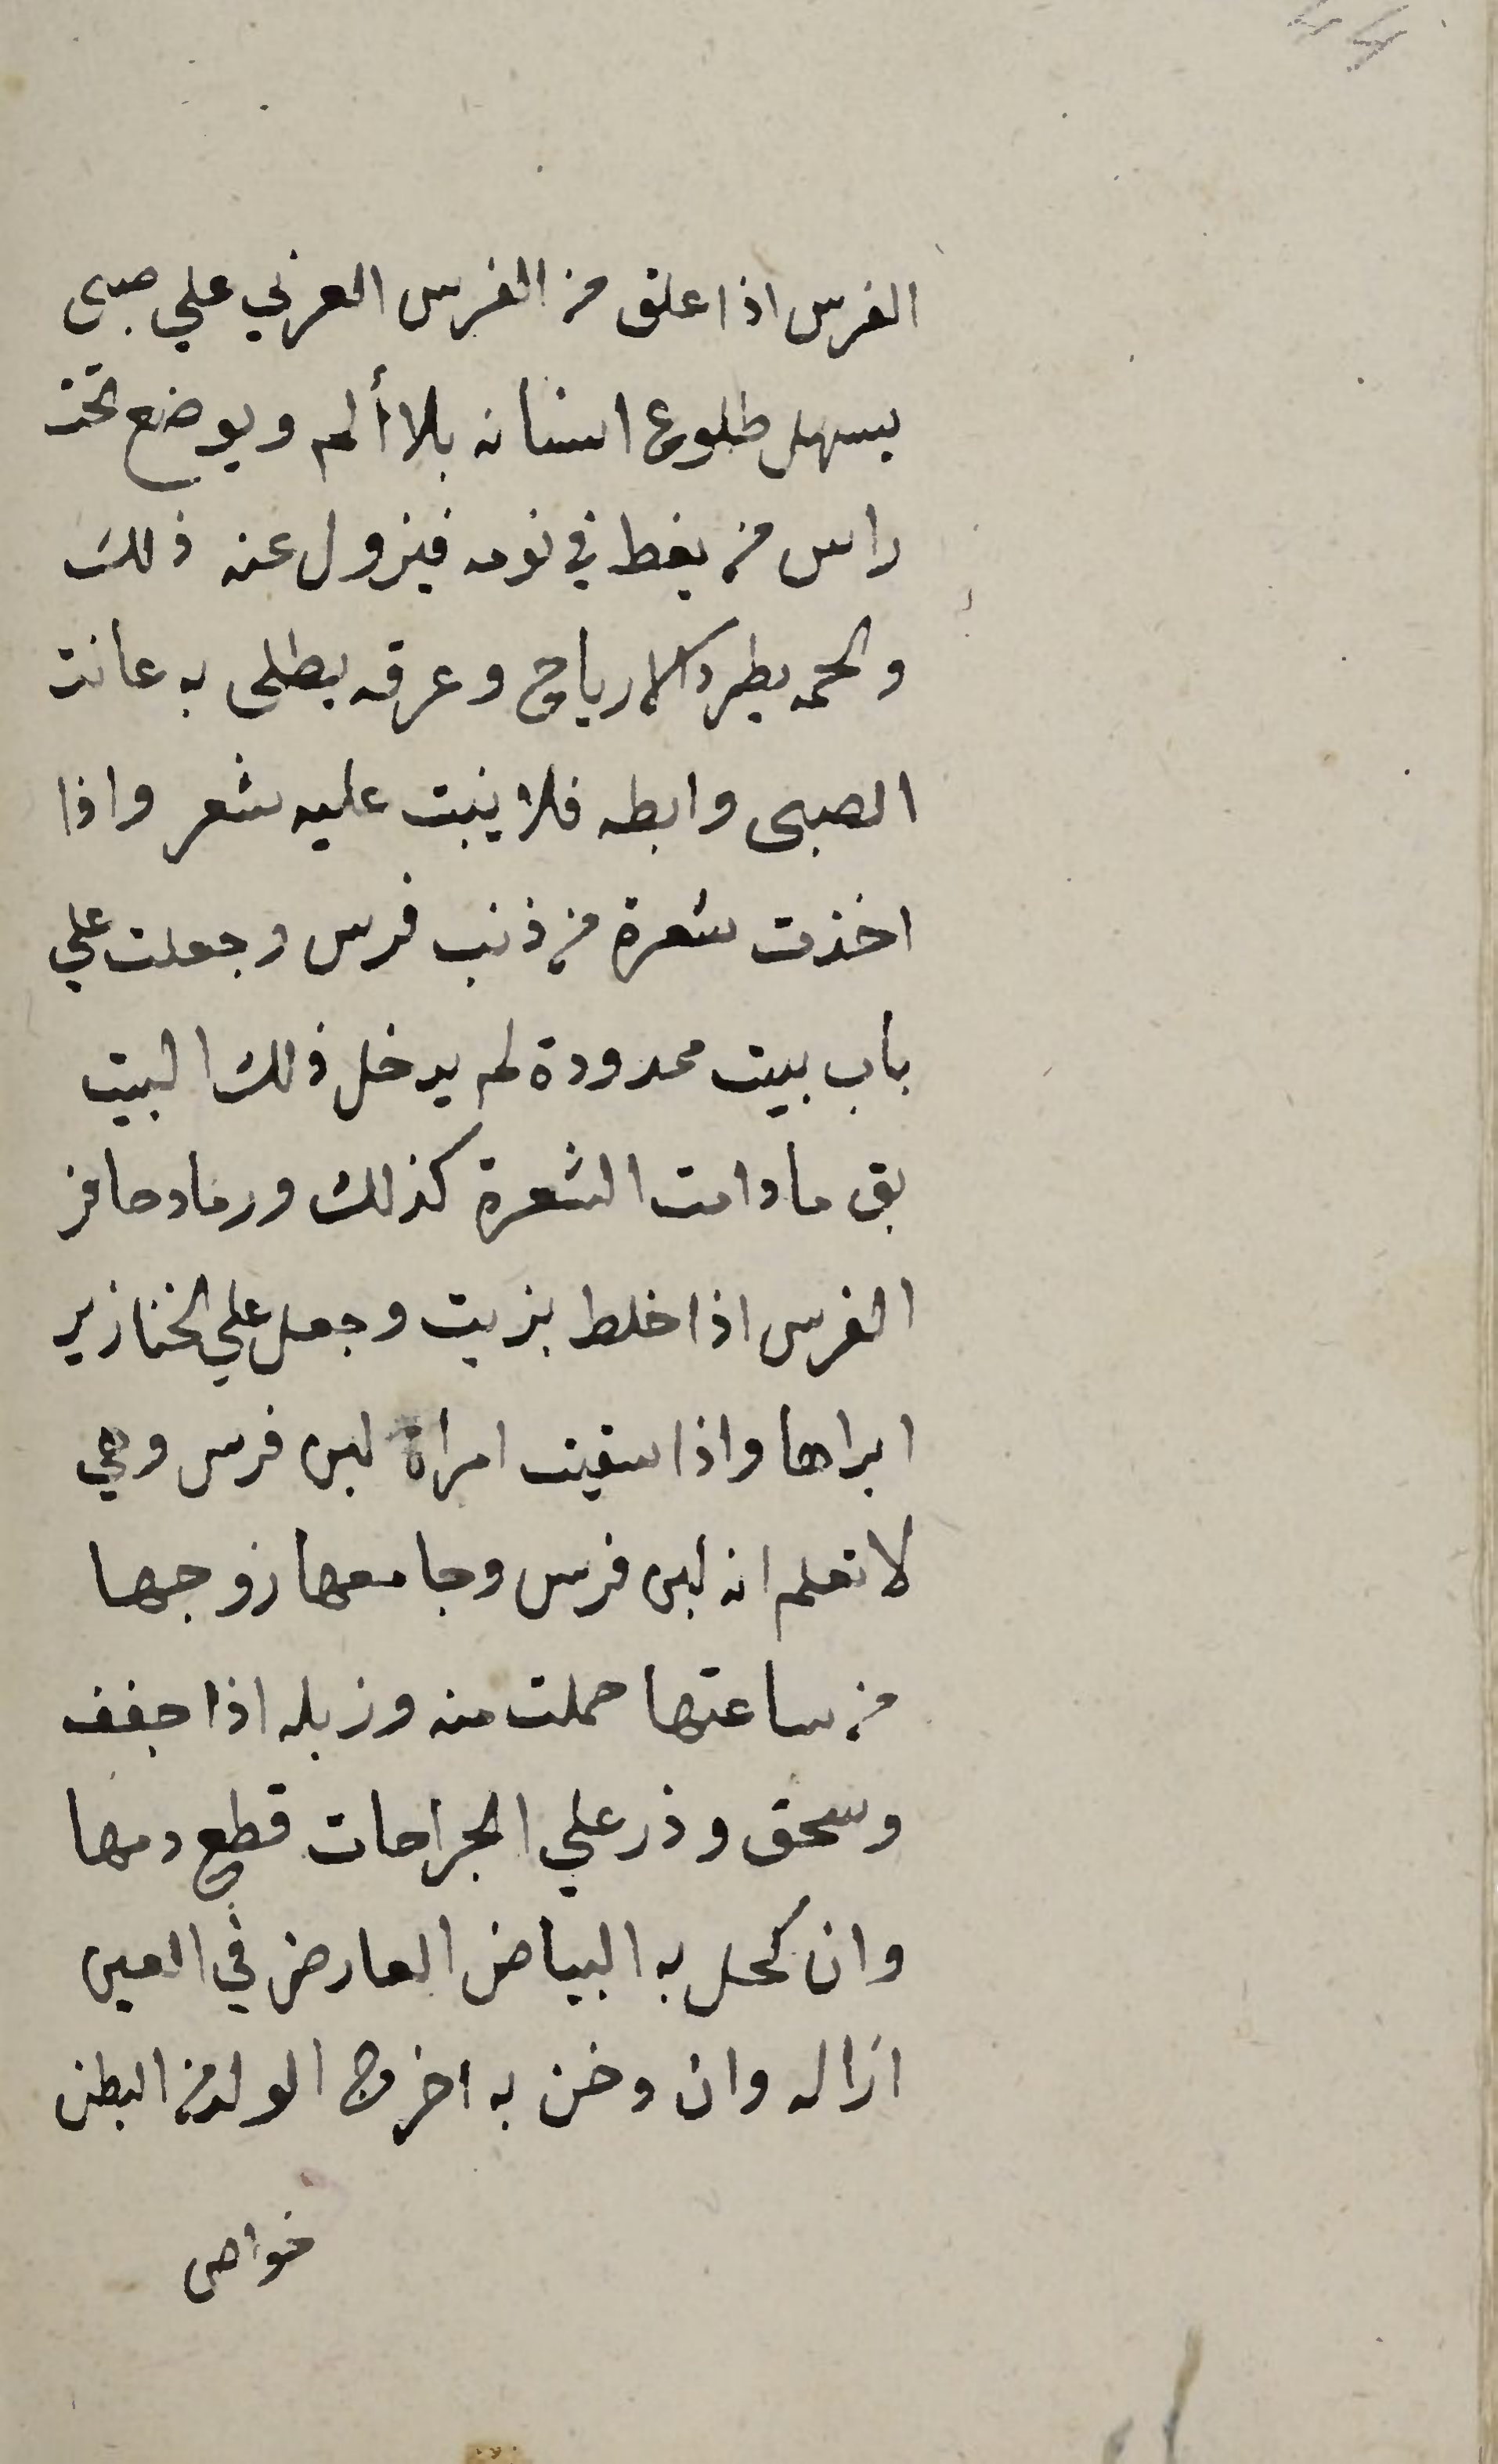 44
الفرس اذا علق من الفرس العربي علي صبي
يسهل طلوع اسنانه بلا ألم ويوضع تحت
راس من يغط في نومه فيزول عنه ذلك
ولحمه يطرد الارياح وعرقه يطلى به عانت
الصبى وابطه فلا ينبت عليه شعر واذا
اخذت شعرة من ذنب فرس وجعلت علي
باب بيت ممدودة لم يدخل ذلك البيت
بق ما دامت الشعرة كذلك ورماد حافر
الفرس اذا خلط بزيت وجعل علي الخنازير
ابراها واذا سقيت امراة لبن فرس وهي
لا تعلم انه لبن فرس وجامعها زوجها
من ساعتها حملت منه وزبله اذا جفف
وسحق وذر علي الجراحات قطع دمها
وان كحل به البياض العارض في العين
ازاله وان دخن به اخرج الولد من البطن
خواص